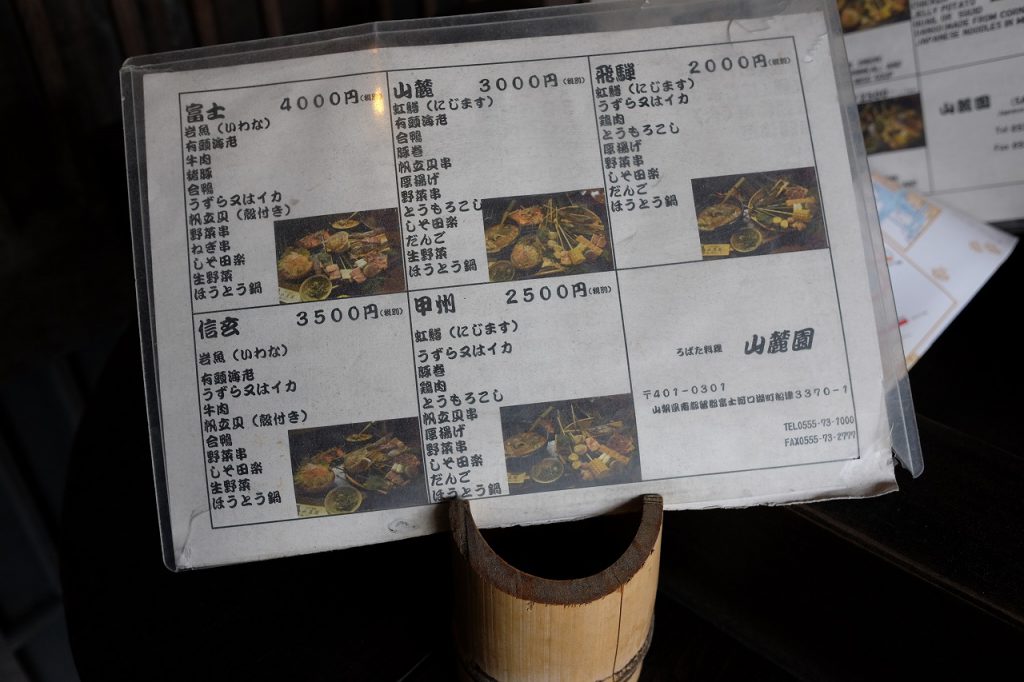 富士 4000円(税別)
岩魚(いわな)
有頭海老
牛肉
猪豚
合鴨
うずら又はイカ
帆立貝(殻付き)
野菜串
ねぎ串
しそ田楽
生野菜
ほうとう鍋
山麓 3000円(税別)
虹鱒(にじます)
有頭海老
合鴨
豚巻
帆立貝串
厚揚げ
野菜串
とうもろこし
しそ田楽
だんご
生野菜
ほうとう鍋
飛騨 2000円(税別)
虹鱒(にじます)
うずら又はイカ
鶏肉
とうもろこし
厚揚げ
野菜串
しそ田楽
だんご
ほうとう鍋
信玄 3500円(税別)
岩魚(いわな)
有頭海老
うずら又はイカ
牛肉
帆立貝(殻付き)
合鴨
野菜串
しそ田楽
生野菜
ほうとう鍋
甲州 2500円(税別)
虹鱒(にじます)
うずら又はイカ
豚巻
鶏肉
とうもろこし
帆立貝串
厚揚げ
野菜串
しそ田楽
だんご
ほうとう鍋
ろばた料理 山麓園
〒401-0301
山梨県南都留郡富士河口湖町船津3370-1
TEL0555-73-1000
FAX0555-73-2777
JELLY POTATO
JAPANESE NOODLES IN
山麓園
Tel
Fax